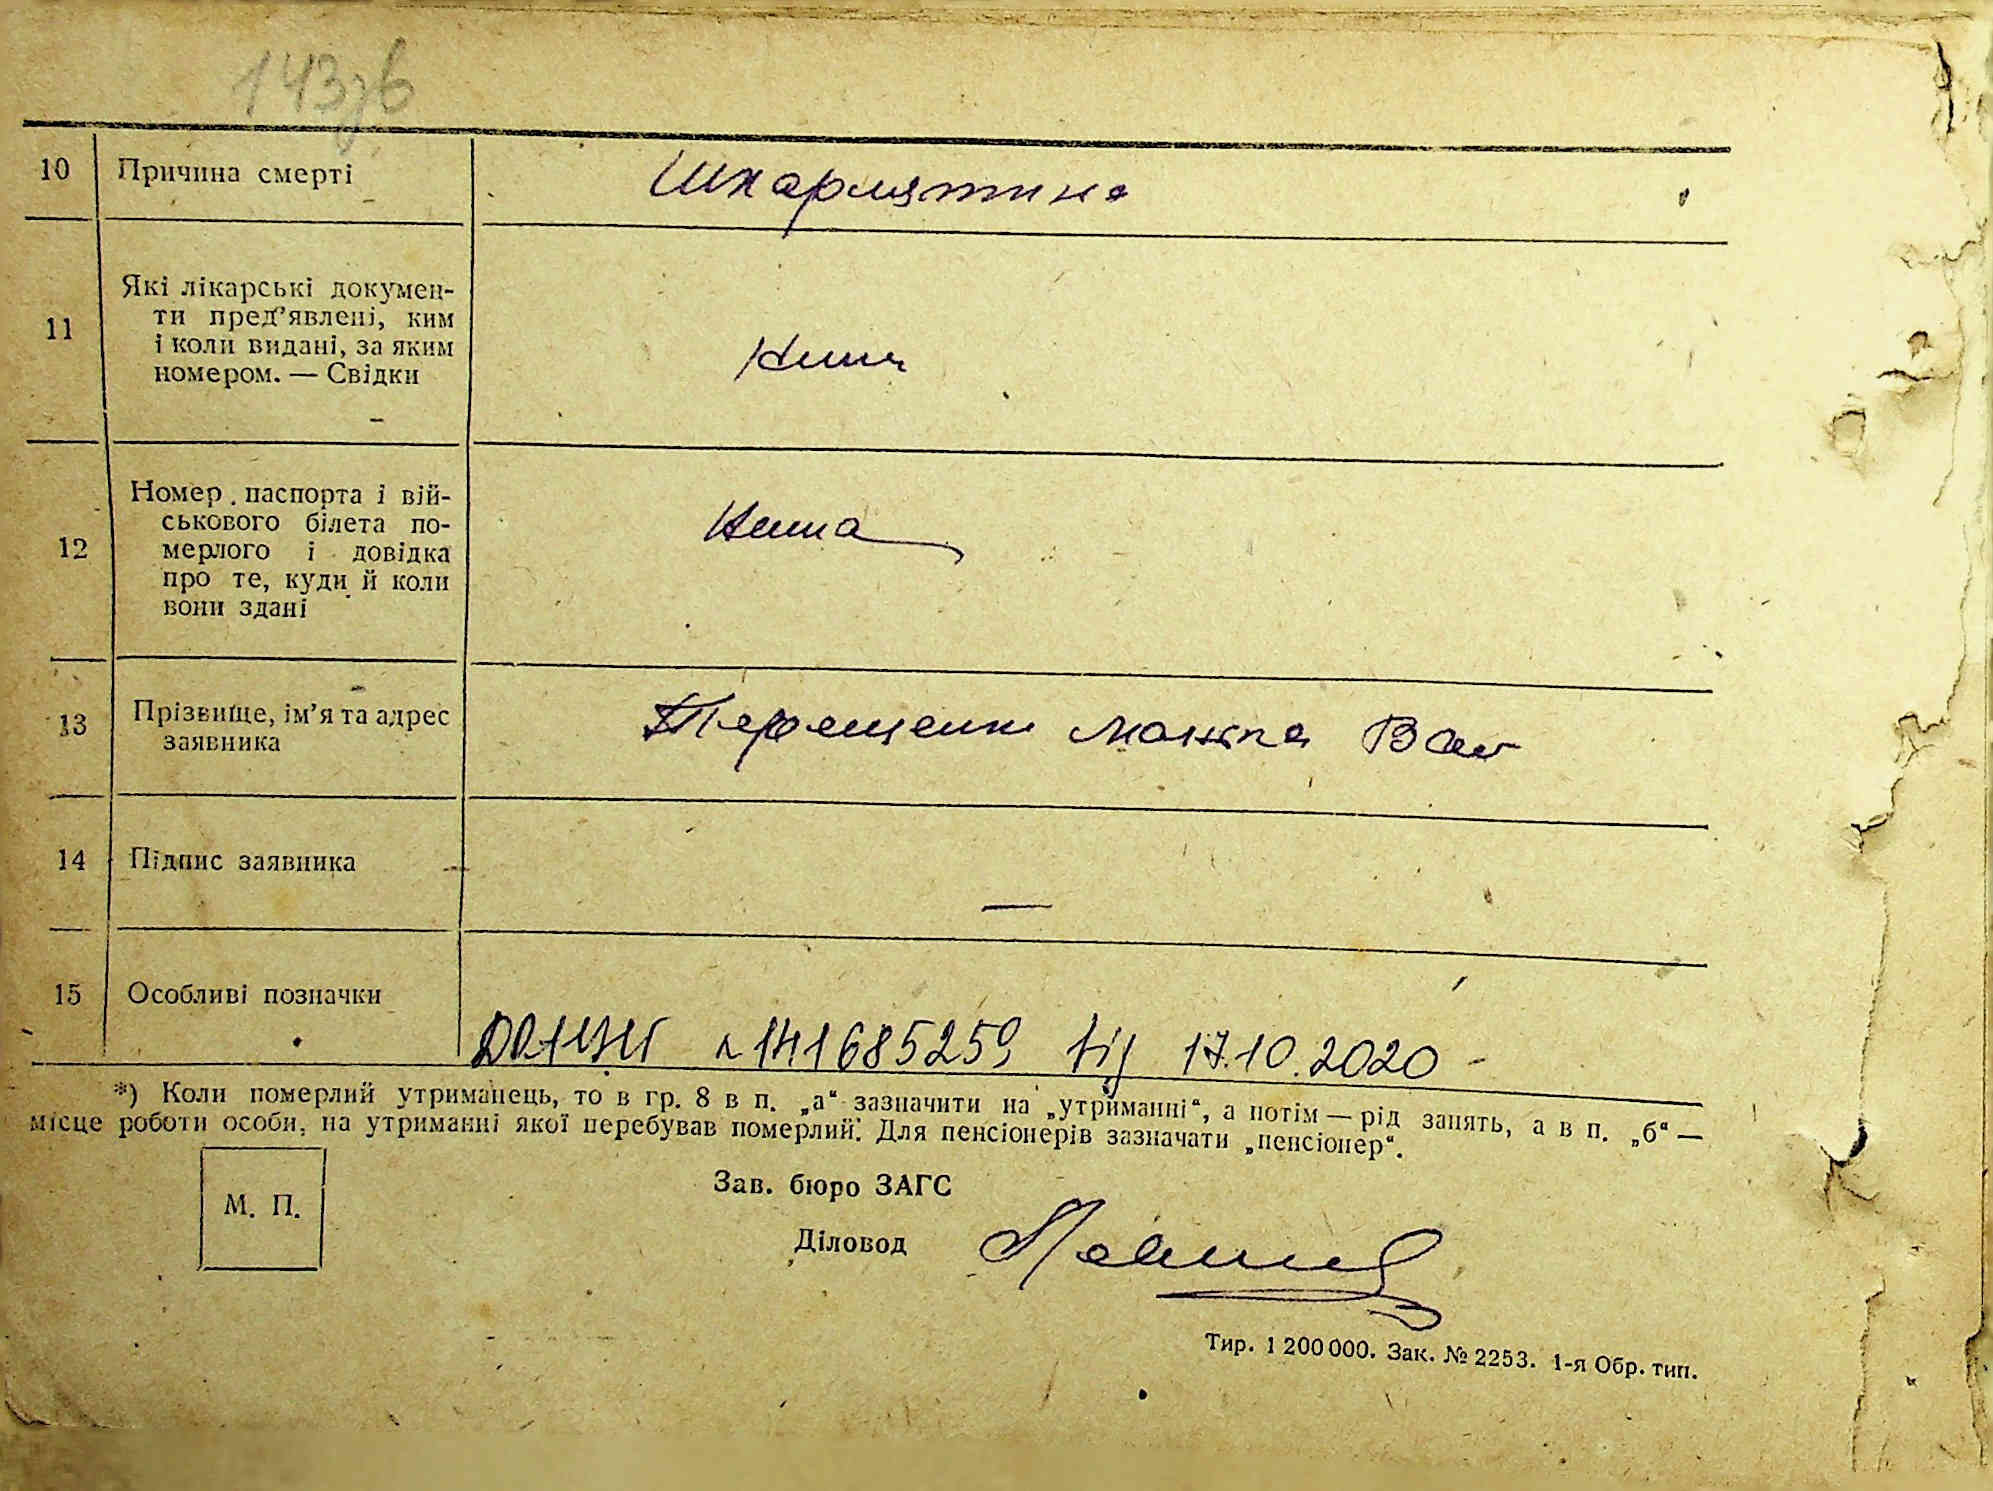 143зв
10 Причина смерті Шкарлятина
11 Які лікарські докумен-
ти пред'явлені, ким
і коли видані, за яким
номером. — Свідки
Нима
12 Номер паспорта і вій-
ськового білета по-
мерлого і довідка
про те, куди й коли
вони здані
Нима
13 Прізвище, ім'я та адрес
заявника
Терещенко Вас
14 Підпис заявника —
15 Особливі позначки
141685259 від 17.10.2020
*) Коли померлий утриманець, то в гр. 8 в п. „а“ зазначити на „утриманні“, а потім — рід занять, а в п. „б“ —
місце роботи особи, на утриманні якої перебував померлий. Для пенсіонерів зазначати „пенсіонер“.
М. П.
Зав. бюро ЗАГС
Діловод
Тир. 1 200 000. Зак. № 2253. 1-я Обр. тип.